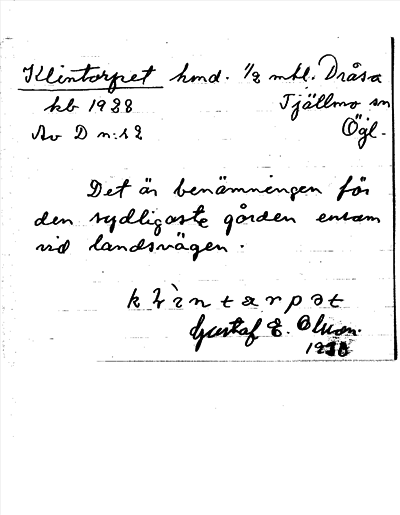 Klintorpet hmd. 1/2 mtl. Dråsa
kb 1988 Tjällmo sn
Av D n:s 2 Ögl.
Det är benämningen för
den sydligaste gården ensam
vid landsvägen.
Gustaf E. Olsson.